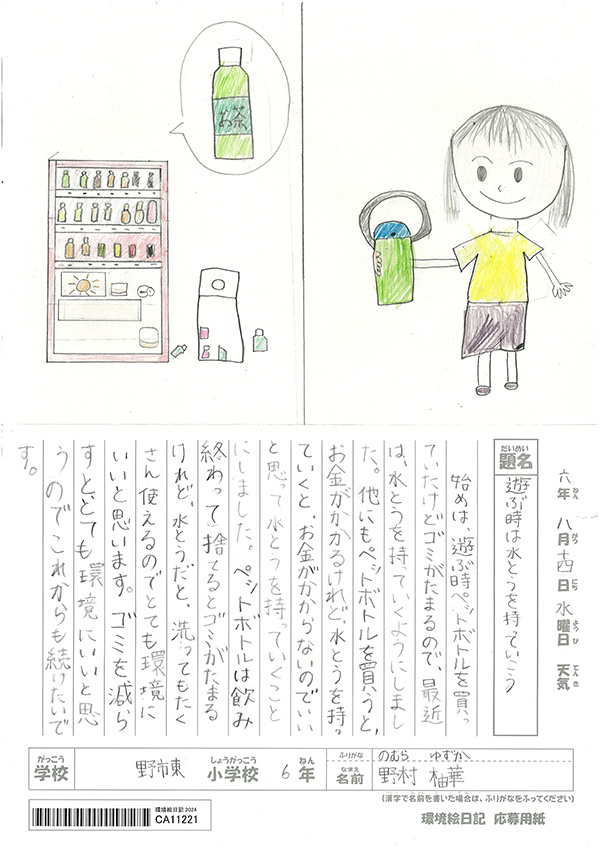 お茶
六年 八月 十四日 水曜日 天気
ねん がつ にち ようび てんき
だいめい
題名
遊ぶ時は水とうを持っていこう
始めは、遊ぶ時ペットボトルを買っ
ていたけどゴミがたまるので、最近
は、水とうを持っていくようにしまし
た。他にもペットボトルを買うと、
お金がかかるけれど、水とうを持っ
ていくと、お金がかからないのでいい
と思って水とうを持っていくこと
にしました。ペットボトルは飲み
終わって捨てるとゴミがたまる
けれど、水とうだと、洗ってもたく
さん使えるのでとても環境に
いいと思います。ゴミを減ら
すととても環境にいいと思
うのでこれからも続けたいで
す。
がっこう しょうがっこう ねん
学校 野市東 小学校 6年
ふりがな のむら ゆずか
なまえ
名前 野村 柚華
(漢字で名前を書いた場合は、ふりがなをふってください)
環境絵日記2024
CA11221
環境絵日記 応募用紙